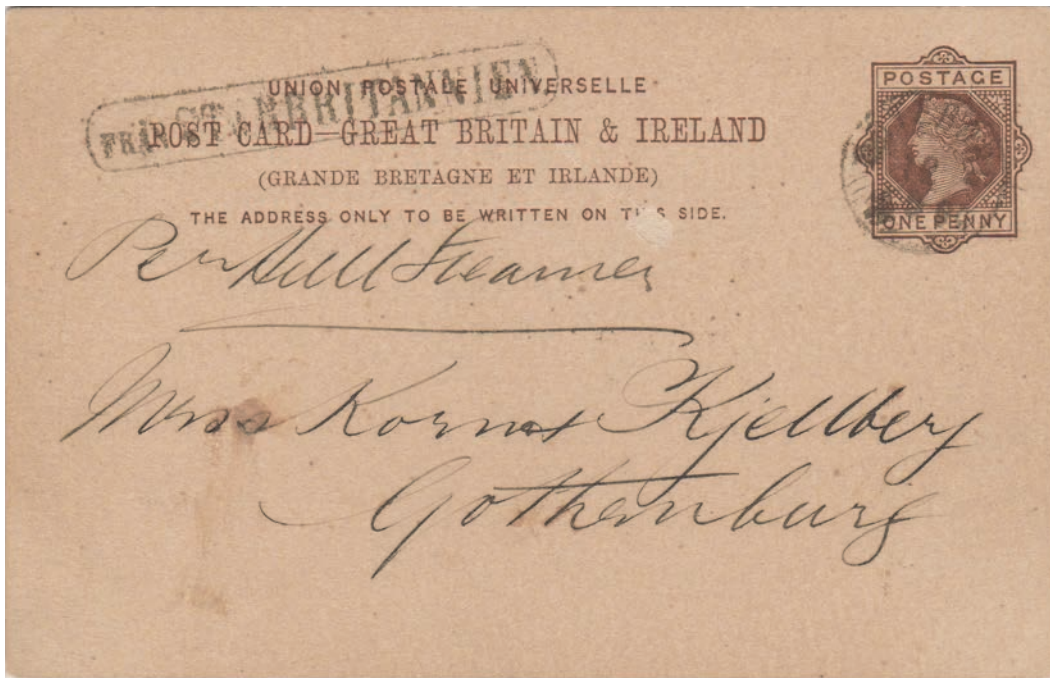 UNION POSTALE UNIVERSELLE
FRÅN ST. BRITANNIEN
POST CARD—GREAT BRITAIN & IRELAND
(GRANDE BRETAGNE ET IRLANDE)
THE ADDRESS ONLY TO BE WRITTEN ON THIS SIDE.
POSTAGE
ONE PENNY
Per Hull Steamer
Mess Korn & Kjellberg
Gothenburg